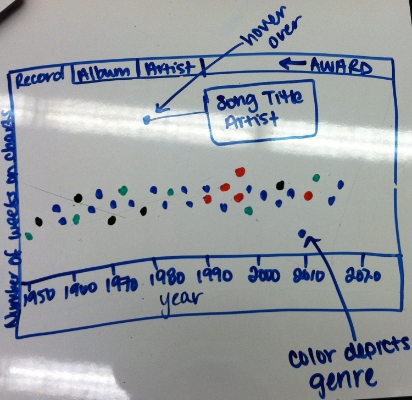 hover
over
Record Album Artist ← AWARD
Song Title
Artist
Number of weeks on charts
1950 1960 1970 1980 1990 2000 2010 2020
year
color depicts
genre